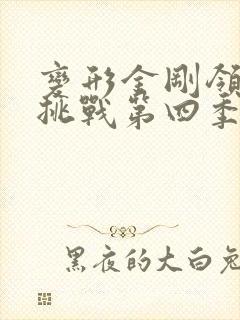 變形金剛領
挑戰第四季
黑夜的大白兔